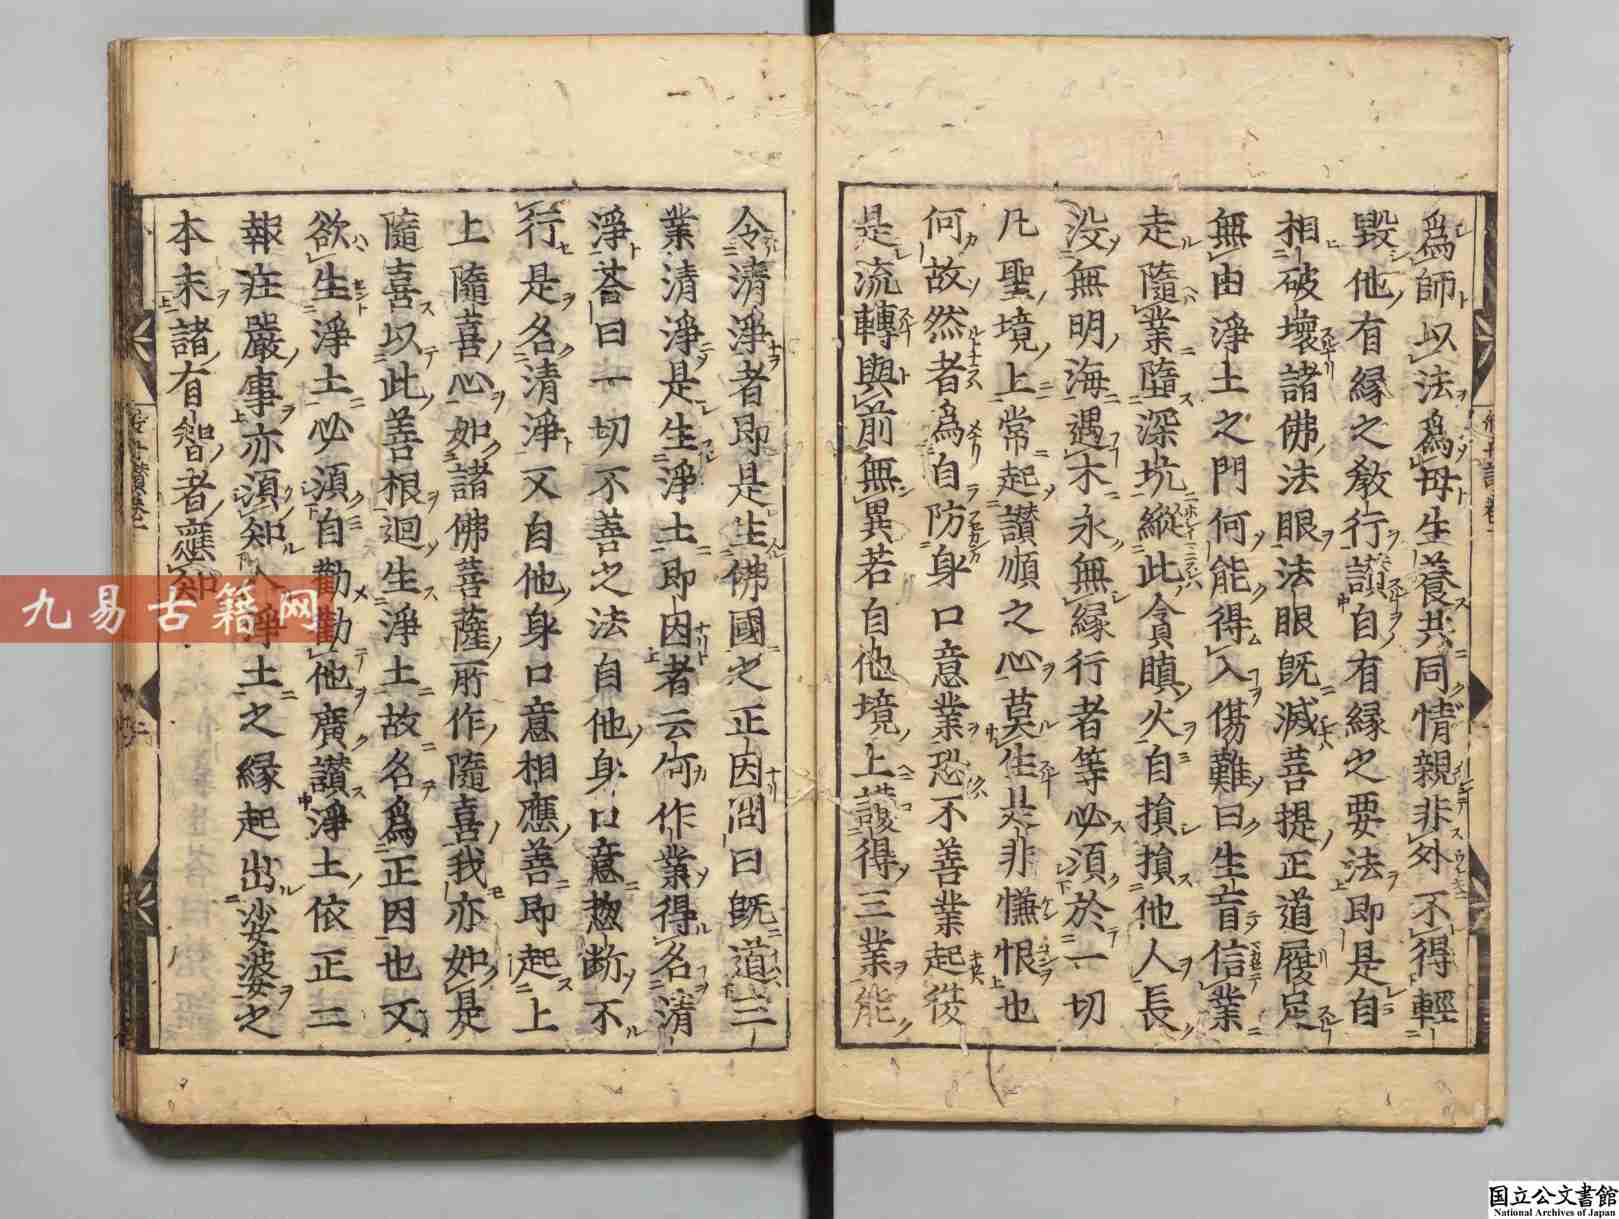 爲師以法爲母生養共同情親非外不得輕
毀他有縁之敎行讃自有縁之要法即是自
相破壞諸佛法眼法眼既滅菩提正道履足
無由淨土之門何能得入傷難曰生盲信業
走隨業墮深坑縱此貪瞋火自損損他人長
没無明海遇木永無縁行者等必須於一切
凡聖境上常起讃順之心莫生是非慊恨也
何故然者爲自防身口意業恐不善業起復
是流轉與前無異若自他境上護得三業能
令清淨者即是生佛國之正因問曰既道三
業清淨是生淨土即因者云何作業得名清
淨荅曰一切不善之法自他身口意惣断不
行是名清淨又自他身口意相應善即起上
上隨喜心如諸佛菩薩所作隨喜我亦如是
隨喜以此善根迴生淨土故名爲正因也又
欲生淨土必須自勸勸他廣讃淨土依正二
報莊嚴事亦須知入淨土之縁起出娑婆之
本末諸有智者應知
九易古籍网
国立公文書館
National Archives of Japan